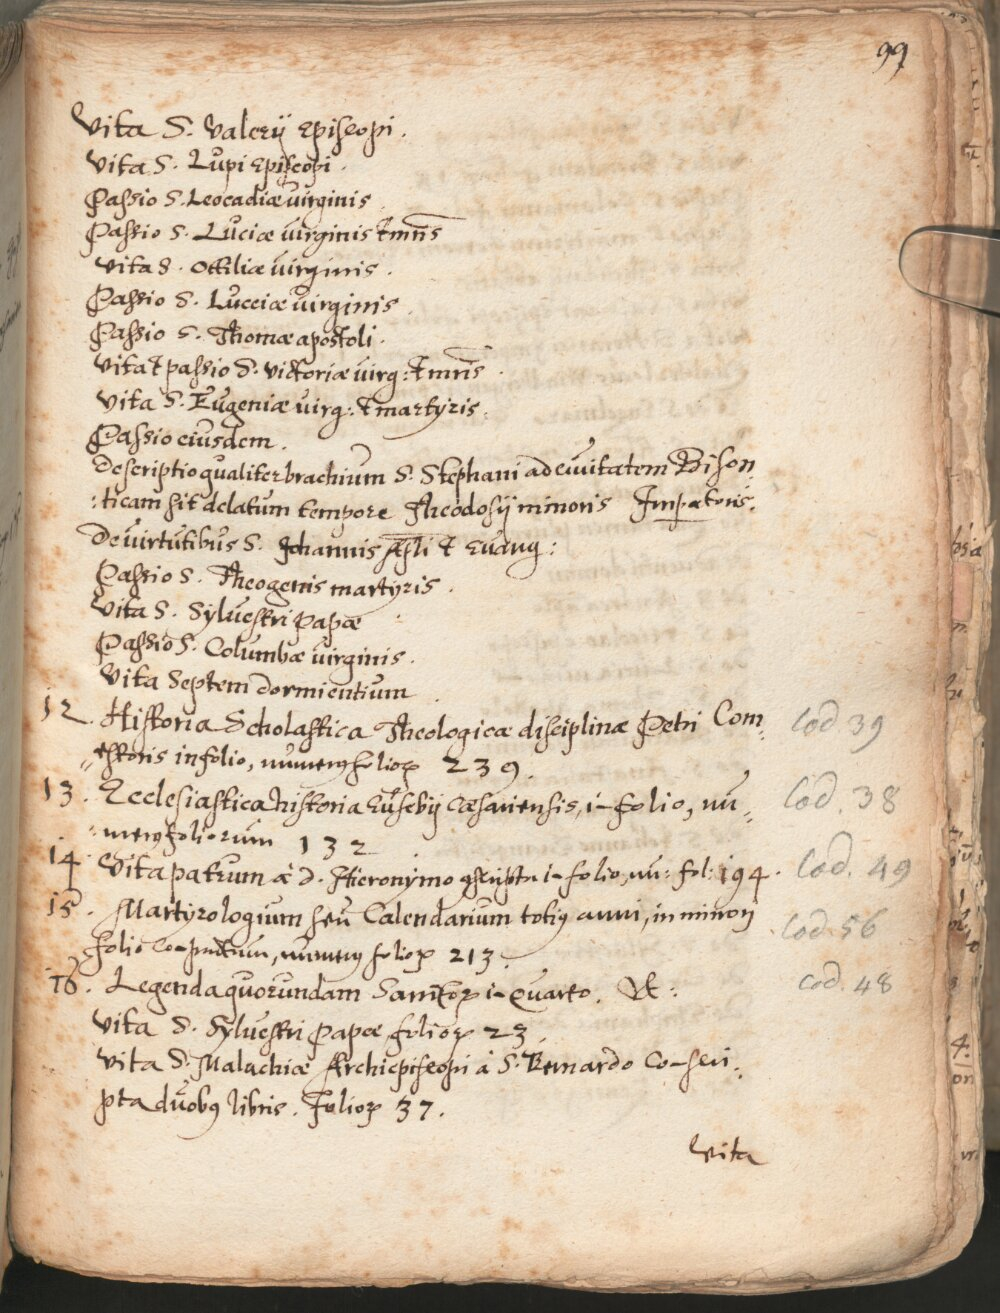 99
Vita S. Valerij Episcopi.
Vita S. Lupi Episcopi.
Passio S. Leocadiæ virginis
Passio S. Luciæ virginis & mris
Vita S. Ottiliæ virginis.
Passio S. Lucciæ virginis.
Passio S. Thomæ apostoli.
Vita & passio S. Victoriæ virg: & mris.
Vita S. Eugeniæ virg: & martyris.
Passio eiusdem.
Descriptio qualiter brachium S. Stephani ad civitatem Bison
:ticam sit delatum tempore Theodosij minoris Impætoris.
De virtutibus S. Iohannis Apli & Evang:
Passio S. Theogenis martyris.
Vita S. Sylvestri Papæ
Passio S. Columbæ virginis.
Vita Septem dormientium
12. Historia Scholastica Theologicæ disciplinæ Petri Com„ Cod 39
„estoris in folio, numerus folioꝝ 239.
13. Ecclesiastica historia Eusebij Cæsariensis, i- folio, nu„ Cod. 38
:merus foliorum 132
14. Vita patrum à D. Hieronymo ꝯscripta i- folio, nu: fol: 194. Cod. 49
15. Martyrologium seu Calendarium totiꝰ anni, in minori Cod 56
folio co-, numerus folioꝝ 213.
16. Legenda quorundam Sanctoꝝ i- Quarto. Ut: Cod. 48
Vita S. Sylvestri Papæ folioꝝ 23.
Vita S. Malachiæ Archiepiscopi à S. Bernardo co-scri„
pta duobꝰ libris. Folioꝝ 37.
Vita